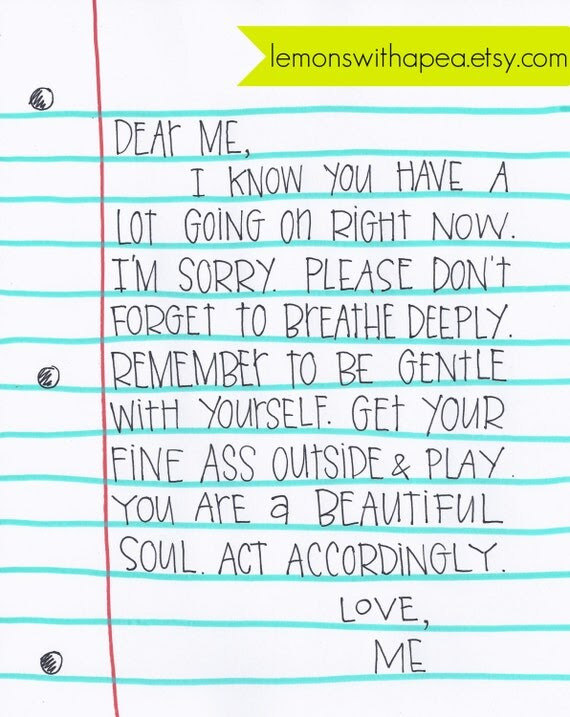 lemonswithapea.etsy.com
DEAr ME,
I KNOW YOU HAVE A
LOt GOiNG ON RiGHt NOW.
I'M SORRY. PLEASE DON't
FORGEt tO BrEAtHE DEEPLY.
REMEMBEr tO BE GENtLE
WitH YOUrSELF. GEt YOUR
FiNE ASS OUtSiDE & PLAY.
YOU ArE a BEAUTiFUL
SOUL. ACT ACCORDiNGLY.
LOVE,
ME